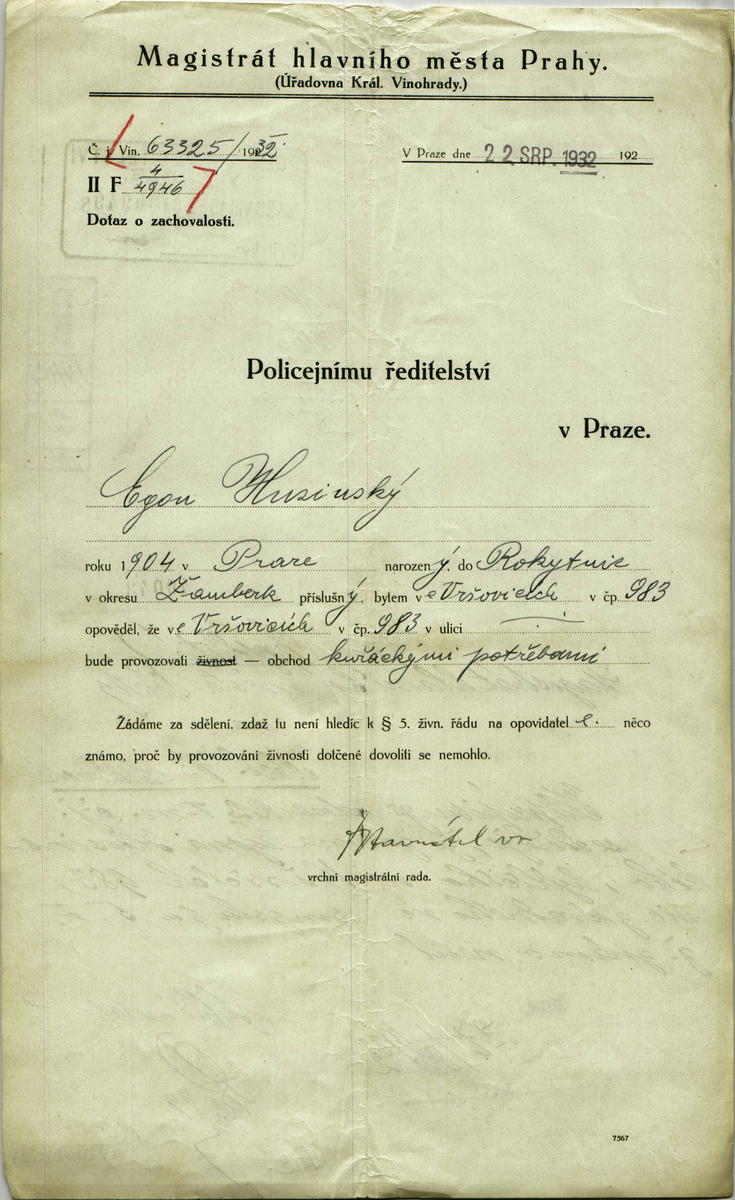 Magistrát hlavního města Prahy.
(Úřadovna Král. Vinohrady.)
Č. j. Vin. 63325/1932
V Praze dne 22 SRP. 1932 192
II F 4/4946
Dotaz o zachovalosti.
Policejnímu ředitelství
v Praze.
Egon Husinský
roku 1904 v Praze narozený, do Rokytnic
v okresu Žamberk příslušný, bytem ve Vršovicích v čp. 983
opověděl, že ve Vršovicích v čp. 983 v ulici
bude provozovati živnost — obchod kuřáckými potřebami
Žádáme za sdělení, zdaž tu není hledíc k § 5. živn. řádu na opovídatele něco
známo, proč by provozování živnosti dotčené dovoliti se nemohlo.
vrchní magistrátní rada.
7567